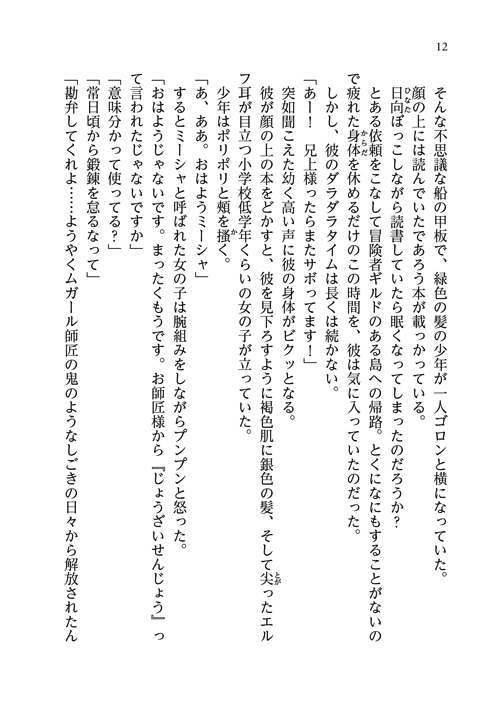 12
そんな不思議な船の甲板で、緑色の髪の少年が一人ゴロンと横になっていた。
顔の上には読んでいたであろう本が載っかっている。
日向ぼっこしながら読書していたら眠くなってしまったのだろうか?
とある依頼をこなして冒険者ギルドのある島への帰路。とくになにもすることがないの
で疲れた身体を休めるだけのこの時間を、彼は気に入っていたのだった。
しかし、彼のダラダラタイムは長くは続かない。
「あー! 兄上様ったらまたサボってます!」
突如聞こえた幼く高い声に彼の身体がビクッとなる。
彼が顔の上の本をどかすと、彼を見下ろすように褐色肌に銀色の髪、そして尖ったエル
フ耳が目立つ小学校低学年くらいの女の子が立っていた。
少年はポリポリと頬を掻く。
「あ、ああ。おはようミーシャ」
するとミーシャと呼ばれた女の子は腕組みをしながらプンプンと怒った。
「おはようじゃないです。まったくもうです。お師匠様から『じょうざいせんじょう』っ
て言われたじゃないですか」
「意味分かって使ってる?」
「常日頃から鍛錬を怠るなって」
「勘弁してくれよ……ようやくムガール師匠の鬼のようなしごきの日々から解放されたん